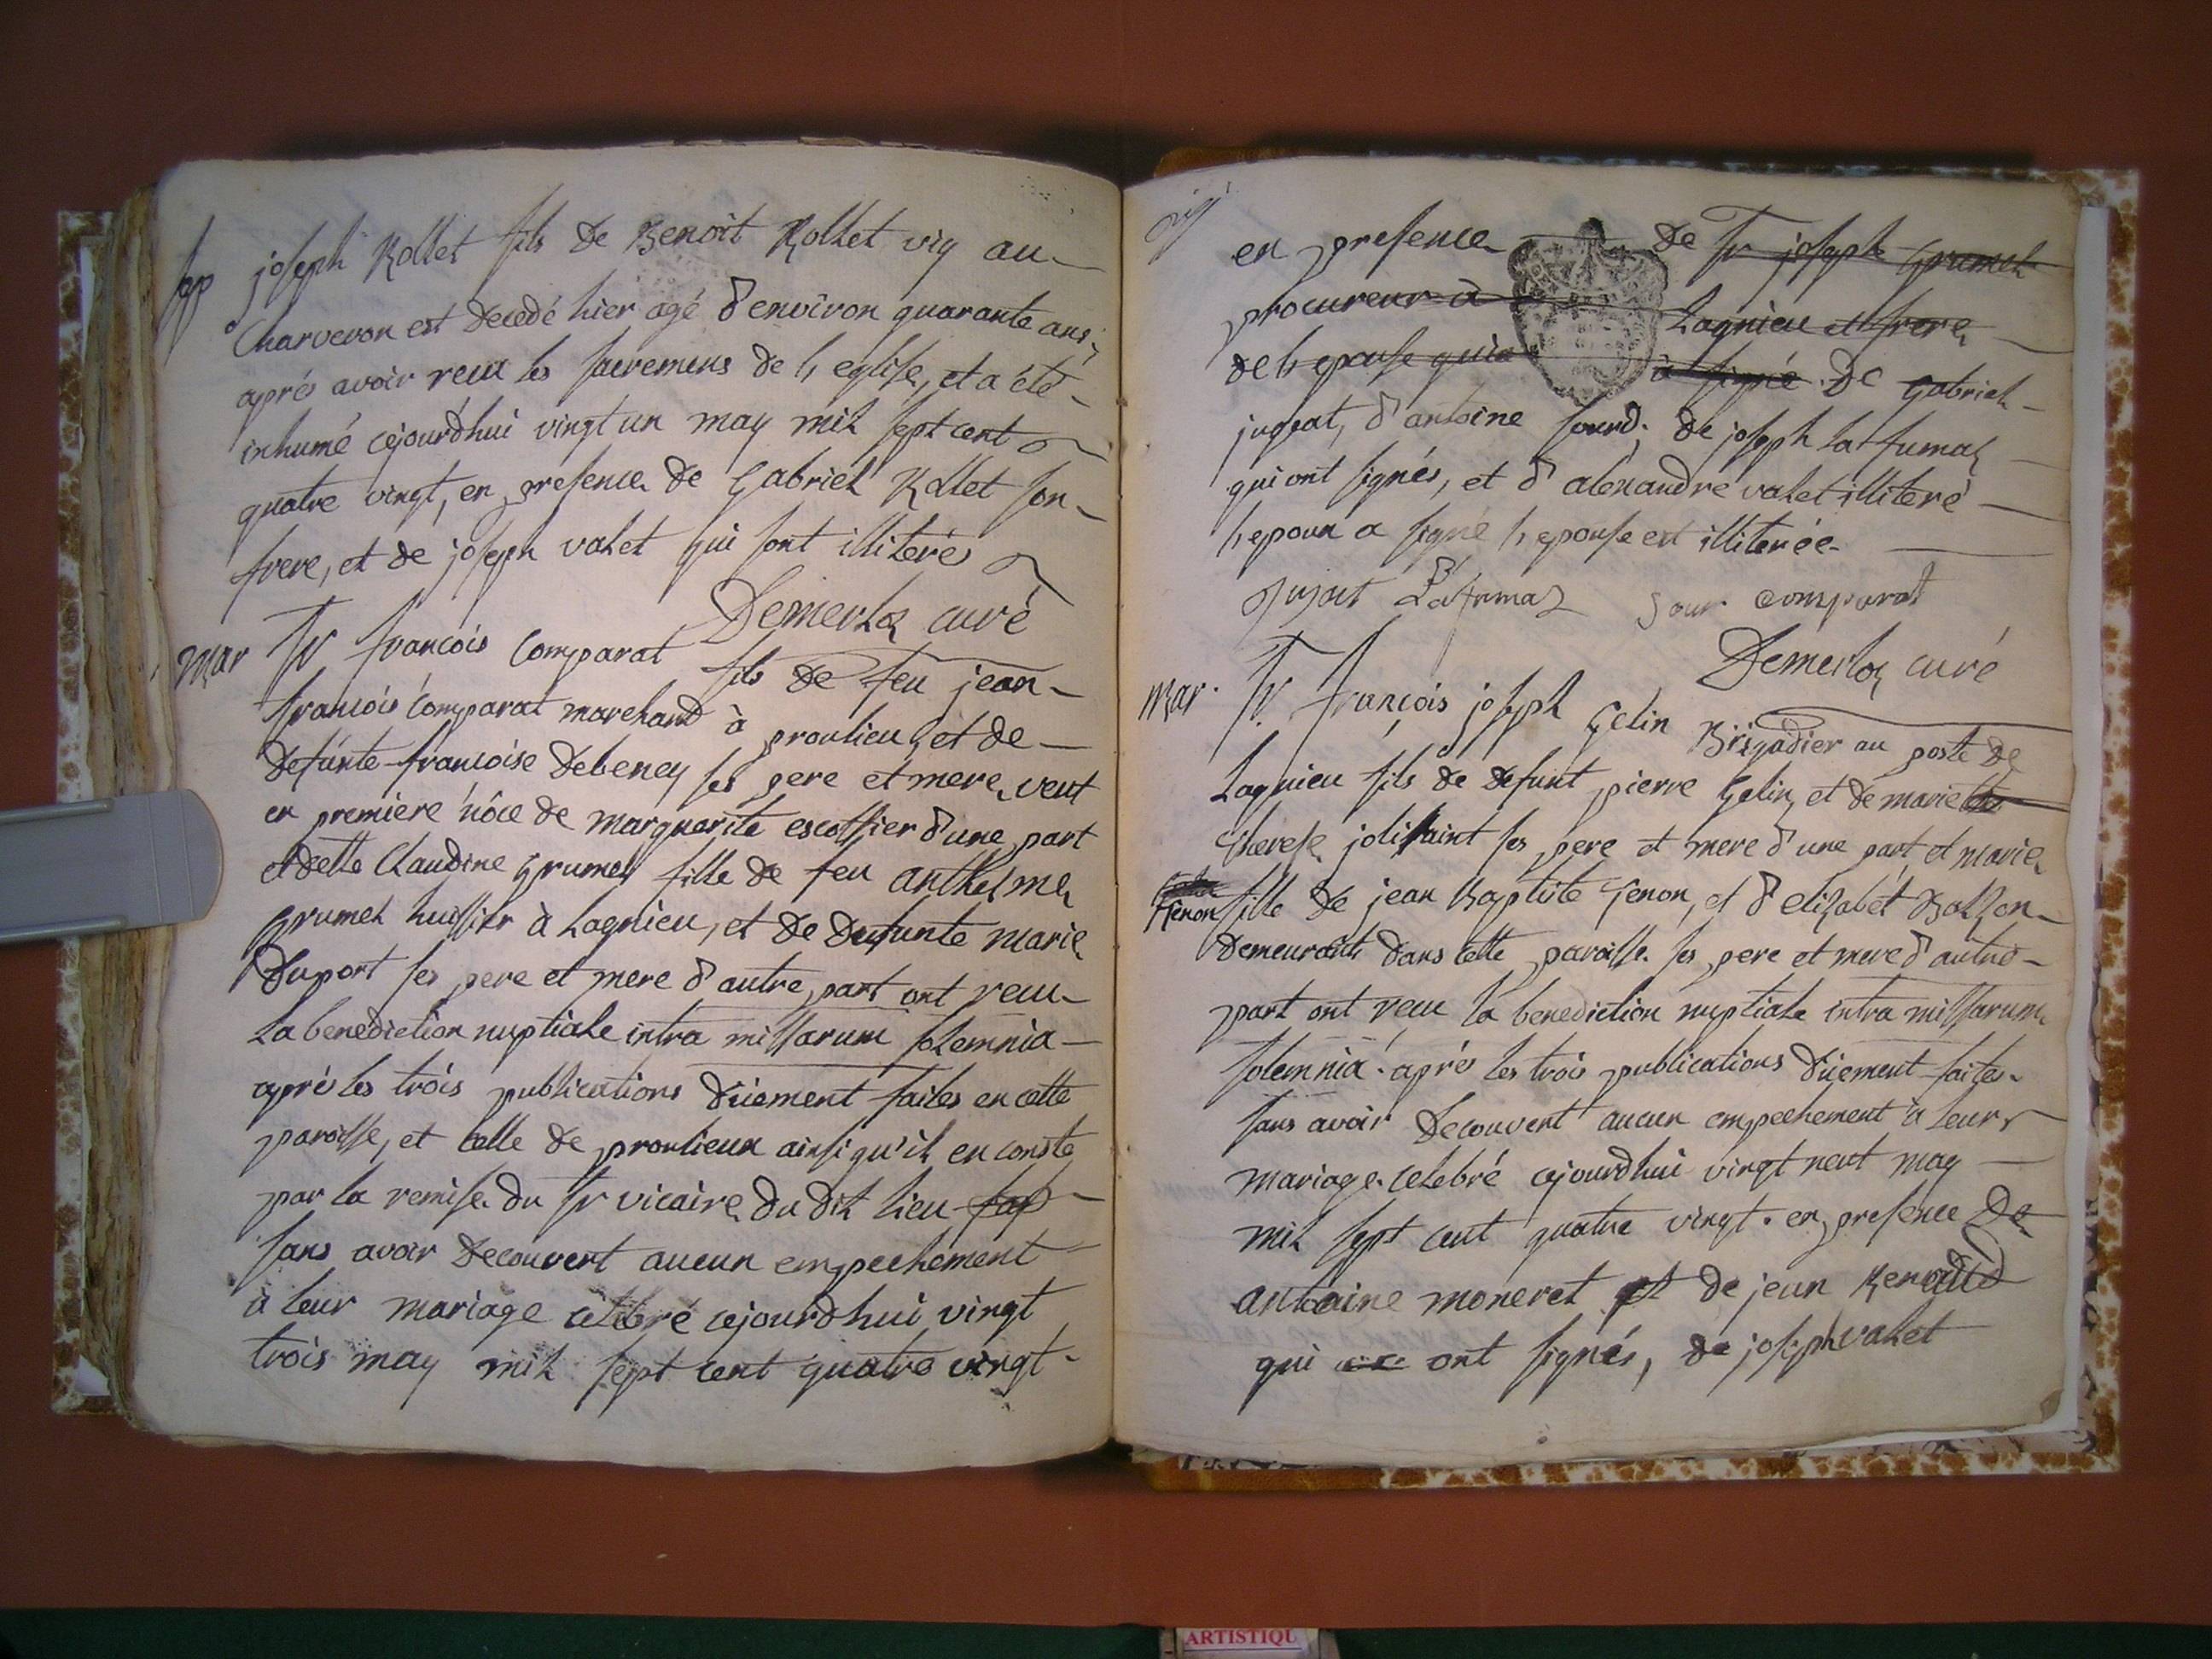 sep joseph Rollet fils de Benoit Rollet vig au
Charveron est decedé hier agé d'environ quarante ans,
aprés avoir reçu les sacremens de l'eglise, et a été
inhumé cejourd'hui vingt un may mil sept cent
quatre vingt, en presence de Gabriel Rollet son
frere, et de joseph valet qui sont illiterés
Demerloz curé
Mar Sr francois Comparat fils de feu jean
francois Comparat marchand à proulieu, et de
defunte francoise Debeney ses pere et mere, veuf
en premiere nôce de marguerite escoffier d'une part
et delle Claudine Grumel fille de feu anthelme
Grumel huissier à Lagnieu, et de defunte marie
Duport ses pere et mere d'autre part ont reçu
la benediction nuptiale intra missarum solemnia
aprés les trois publications düement faites en cette
paroisse, et celle de proulieux ainsi qu'il en conste
par la remise du Sr vicaire du dit lieu
sans avoir decouvert aucun empechement
à leur mariage célébré cejourd'hui vingt
trois may mil sept cent quatre vingt
en presence de Sr joseph Grumel
procureur à Lagnieu et frere
de l'epouse qui a signé De Gabriel
jugeat, d'antoine sourd, de joseph Lafumaz
qui ont signés, et d'alexandre valet illiteré
l'epoux a signé l'epouse est illiterée
Lafumaz Sour comparat
Demerloz curé
Mar. Sr. françois joseph Gelin Brigadier au poste de
Lagnieu fils de defunt pierre Gelin, et de marie
therese jolisaint ses pere et mere d'une part et marie
Genon fille de jean Baptiste Genon, et d'elizabet Balzon
demeurants dans cette paroisse ses pere et mere d'autre
part ont reçu la benediction nuptiale intra missarum
solemnia. aprés les trois publications düement faites
sans avoir decouvert aucun empechement à leur
mariage celebré cejourd'hui vingt neuf may
mil sept cent quatre vingt. en presence de
antoine moneret et de jean Renaud
qui ont signés, de joseph valet
ARTISTIQU